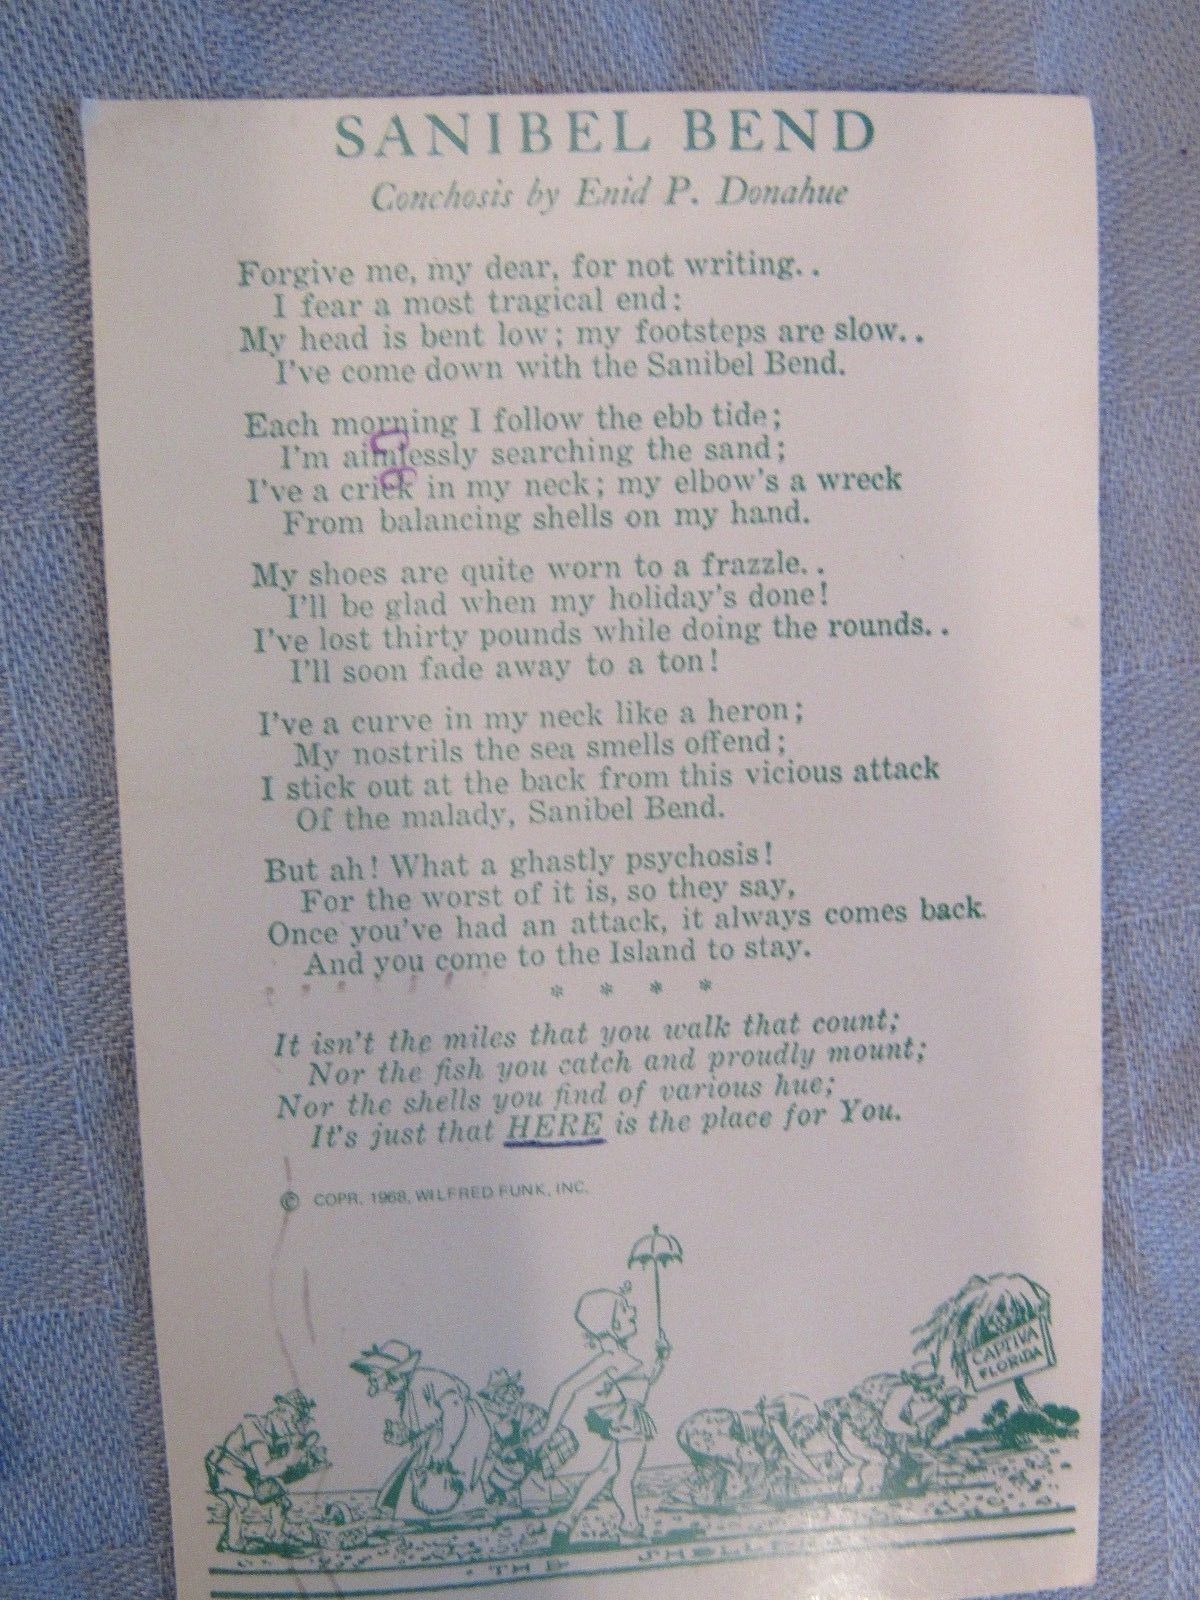 SANIBEL BEND
Conchosis by Enid P. Donahue
Forgive me, my dear, for not writing..
I fear a most tragical end:
My head is bent low; my footsteps are slow..
I've come down with the Sanibel Bend.
Each morning I follow the ebb tide;
I'm aimlessly searching the sand;
I've a crick in my neck; my elbow's a wreck
From balancing shells on my hand.
My shoes are quite worn to a frazzle..
I'll be glad when my holiday's done!
I've lost thirty pounds while doing the rounds..
I'll soon fade away to a ton!
I've a curve in my neck like a heron;
My nostrils the sea smells offend;
I stick out at the back from this vicious attack
Of the malady, Sanibel Bend.
But ah! What a ghastly psychosis!
For the worst of it is, so they say,
Once you've had an attack, it always comes back
And you come to the Island to stay.
* * * *
It isn't the miles that you walk that count;
Nor the fish you catch and proudly mount;
Nor the shells you find of various hue;
It's just that HERE is the place for You.
© COPR. 1968, WILFRED FUNK, INC.
CAPTIVA
FLORIDA
THE SHELLERS